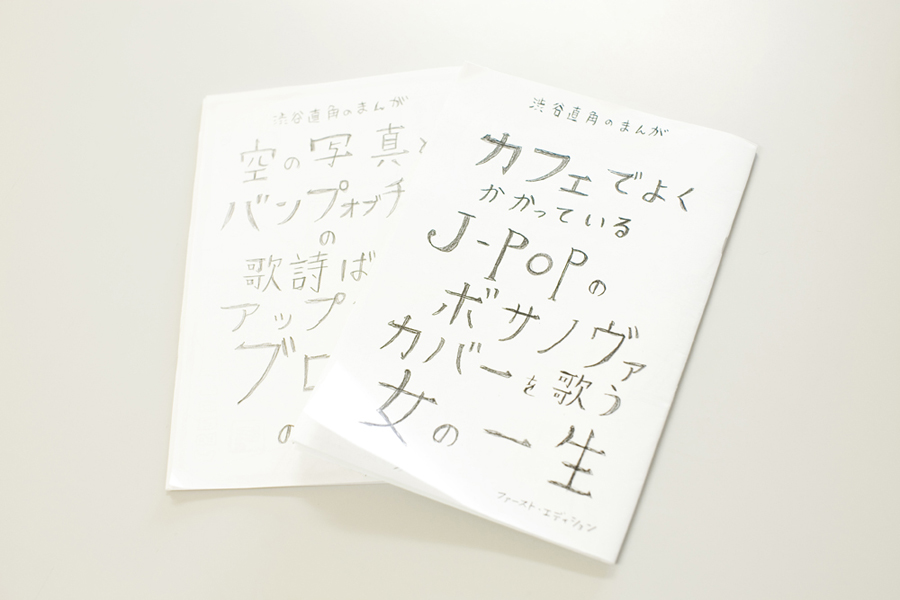 渋谷直角のまんが
空の写真と
バンプオブチ
の
歌詩ば
アップ
ブロ
の
渋谷直角のまんが
カフェでよく
かかっている
J-POPの
ボサノヴァ
カバーを歌う
女の一生
ファースト・エディション